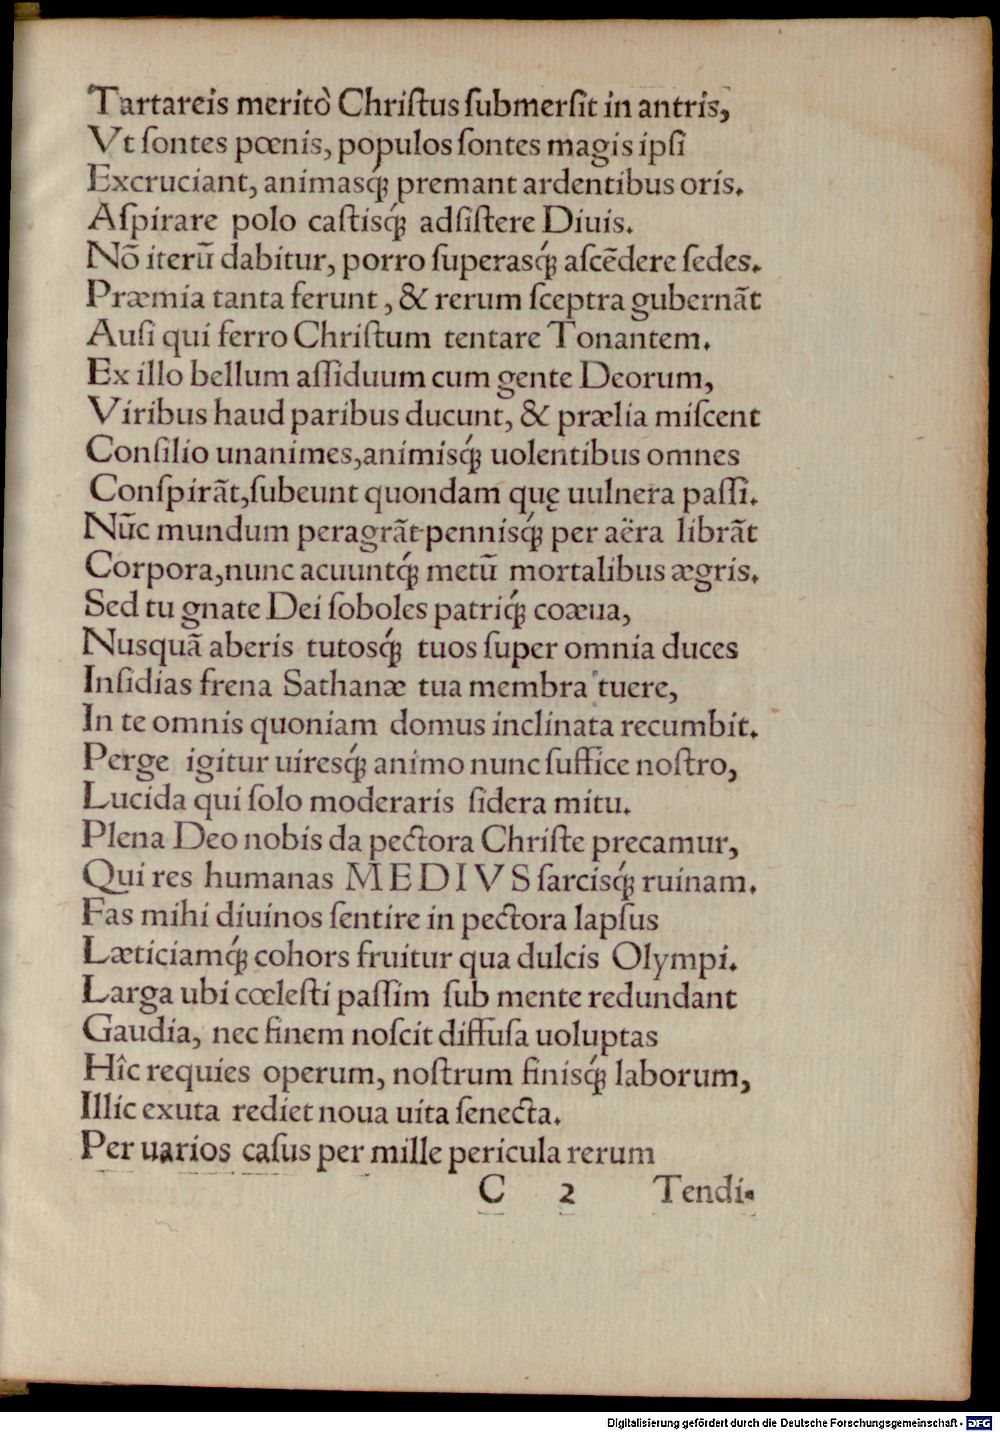 Tartareis meritò Chriſtus ſubmerſit in antris,
Vt ſontes pœnis, populos ſontes magis ipſi
Excruciant, animasq́; premant ardentibus oris.
Aſpirare polo caſtisq́; adſiſtere Diuis.
Nõ iterũ dabitur, porro ſuperasq́; aſcẽdere ſedes.
Præmia tanta ferunt, & rerum ſceptra gubernãt
Auſi qui ferro Chriſtum tentare Tonantem.
Ex illo bellum aſſiduum cum gente Deorum,
Viribus haud paribus ducunt, & prælia miſcent
Conſilio unanimes,animisq́; uolentibus omnes
Conſpirãt,ſubeunt quondam quę uulnera paſſi.
Nũc mundum peragrãt pennisq́; per aëra librãt
Corpora,nunc acuuntq́; metũ mortalibus ægris.
Sed tu gnate Dei ſoboles patriq́; coæua,
Nusquã aberis tutosq́; tuos ſuper omnia duces
Inſidias frena Sathanæ tua membra tuere,
In te omnis quoniam domus inclinata recumbit.
Perge igitur uiresq́; animo nunc ſuffice noſtro,
Lucida qui ſolo moderaris ſidera mitu.
Plena Deo nobis da pectora Chriſte precamur,
Qui res humanas MEDIVS ſarcisq́; ruinam.
Fas mihi diuinos ſentire in pectora lapſus
Læticiamq́; cohors fruitur qua dulcis Olympi.
Larga ubi cœleſti paſſim ſub mente redundant
Gaudia, nec finem noſcit diffuſa uoluptas
Hîc requies operum, noſtrum finisq́; laborum,
Illic exuta rediet noua uita ſenecta.
Per uarios caſus per mille pericula rerum
C 2 Tendi-
Digitalisierung gefördert durch die Deutsche Forschungsgemeinschaft - DFG